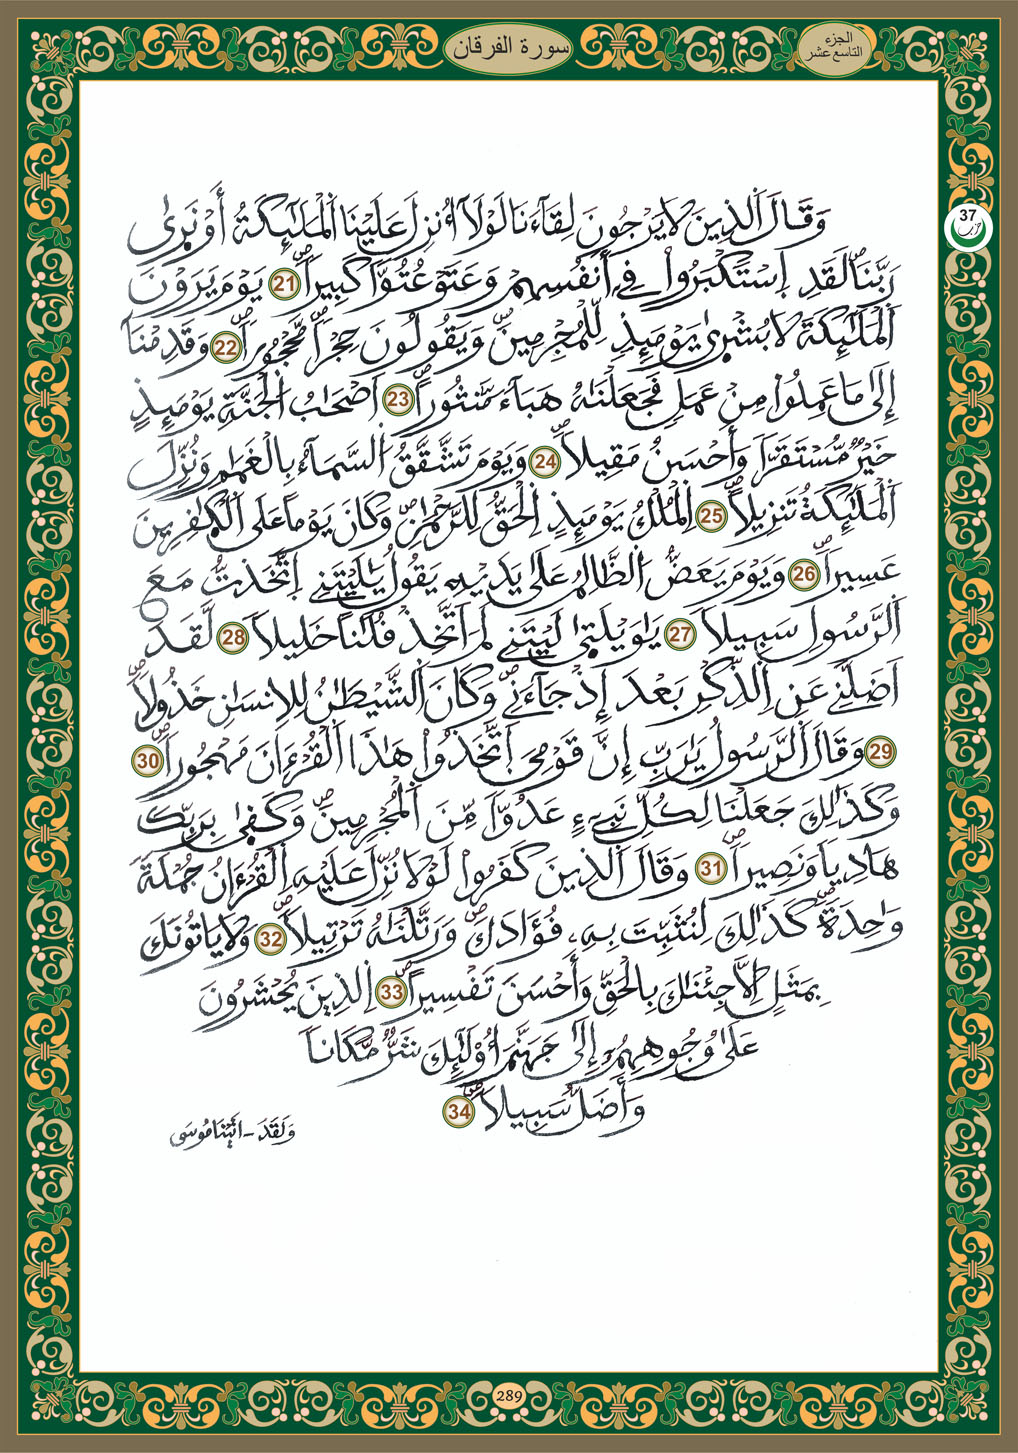 الجزء
التاسع عشر
سورة الفرقان
37
حزب
وَقَالَ اَلذِينَ لَا يَرْجُونَ لِقَآءَنَا لَوْلَآ أُنزِلَ عَلَيْنَا اَلْمَلَٰٓئِكَةُ أَوْ نَر۪ىٰ
رَبَّنَاۖ لَقَدِ اِسْتَكْبَرُواْ فِےٓ أَنفُسِهِمْ وَعَتَوْ عُتُوّاٗ كَبِيراٗۖ 21 يَوْمَ يَرَوْنَ
اَلْمَلَٰٓئِكَةَ لَا بُشْر۪ىٰ يَوْمَئِذٖ لِّلْمُجْرِمِينَۖ وَيَقُولُونَ حِجْراٗ مَّحْجُوراٗۖ 22 وَقَدِمْنَآ
إِلَىٰ مَا عَمِلُواْ مِنْ عَمَلٖ فَجَعَلْنَٰهُ هَبَآءٗ مَّنثُوراًۖ 23 اَصْحَٰبُ اُلْجَنَّةِ يَوْمَئِذٍ
خَيْرٞ مُّسْتَقَرّاٗ وَأَحْسَنُ مَقِيلاٗۖ 24 وَيَوْمَ تَشَّقَّقُ اُلسَّمَآءُ بِالْغَمَٰمِ وَنُزِّلَ
اَلْمَلَٰٓئِكَةُ تَنزِيلاًۖ 25 اِلْمُلْكُ يَوْمَئِذٍ اِلْحَقُّ لِلرَّحْمَٰنِۖ وَكَانَ يَوْماً عَلَى اَلْكٰ۪فِرِينَ
عَسِيراٗۖ 26 وَيَوْمَ يَعَضُّ اُلظَّالِمُ عَلَىٰ يَدَيْهِ يَقُولُ يَٰلَيْتَنِے اِ۪تَّخَذتُّ مَعَ
اَلرَّسُولِ سَبِيلاٗ 27 يَٰوَيْلَت۪ىٰ لَيْتَنِے لَمَ اَتَّخِذْ فُلَٰناً خَلِيلاٗ 28 لَّقَدَ
اَضَلَّنِے عَنِ اِلذِّكْرِ بَعْدَ إِذْ جَآءَنِےۖ وَكَانَ اَلشَّيْطَٰنُ لِلِانسَٰنِ خَذُولاٗۖ
29 وَقَالَ اَلرَّسُولُ يَٰرَبِّ إِنَّ قَوْمِيَ اَ۪تَّخَذُواْ هَٰذَا اَلْقُرْءَانَ مَهْجُوراٗۖ 30
وَكَذَٰلِكَ جَعَلْنَا لِكُلِّ نَبِےٓءٍ عَدُوّاٗ مِّنَ اَلْمُجْرِمِينَۖ وَكَف۪ىٰ بِرَبِّكَ
هَادِياٗ وَنَصِيراٗۖ 31 وَقَالَ اَلذِينَ كَفَرُواْ لَوْلَا نُزِّلَ عَلَيْهِ اِلْقُرْءَانُ جُمْلَةٗ
وَٰحِدَةٗۖ كَذَٰلِكَ لِنُثَبِّتَ بِهِۦ فُؤَادَكَۖ وَرَتَّلْنَٰهُ تَرْتِيلاٗۖ 32 وَلَا يَاتُونَكَ
بِمَثَلٍ اِلَّا جِئْنَٰكَ بِالْحَقِّ وَأَحْسَنَ تَفْسِيراًۖ 33 اِلذِينَ يُحْشَرُونَ
عَلَىٰ وُجُوهِهِمُۥٓ إِلَىٰ جَهَنَّمَ أُوْلَٰٓئِكَ شَرّٞ مَّكَاناٗ
وَأَضَلُّ سَبِيلاٗۖ 34
وَلَقَدَ - اتَيْنَا مُوسَى
289